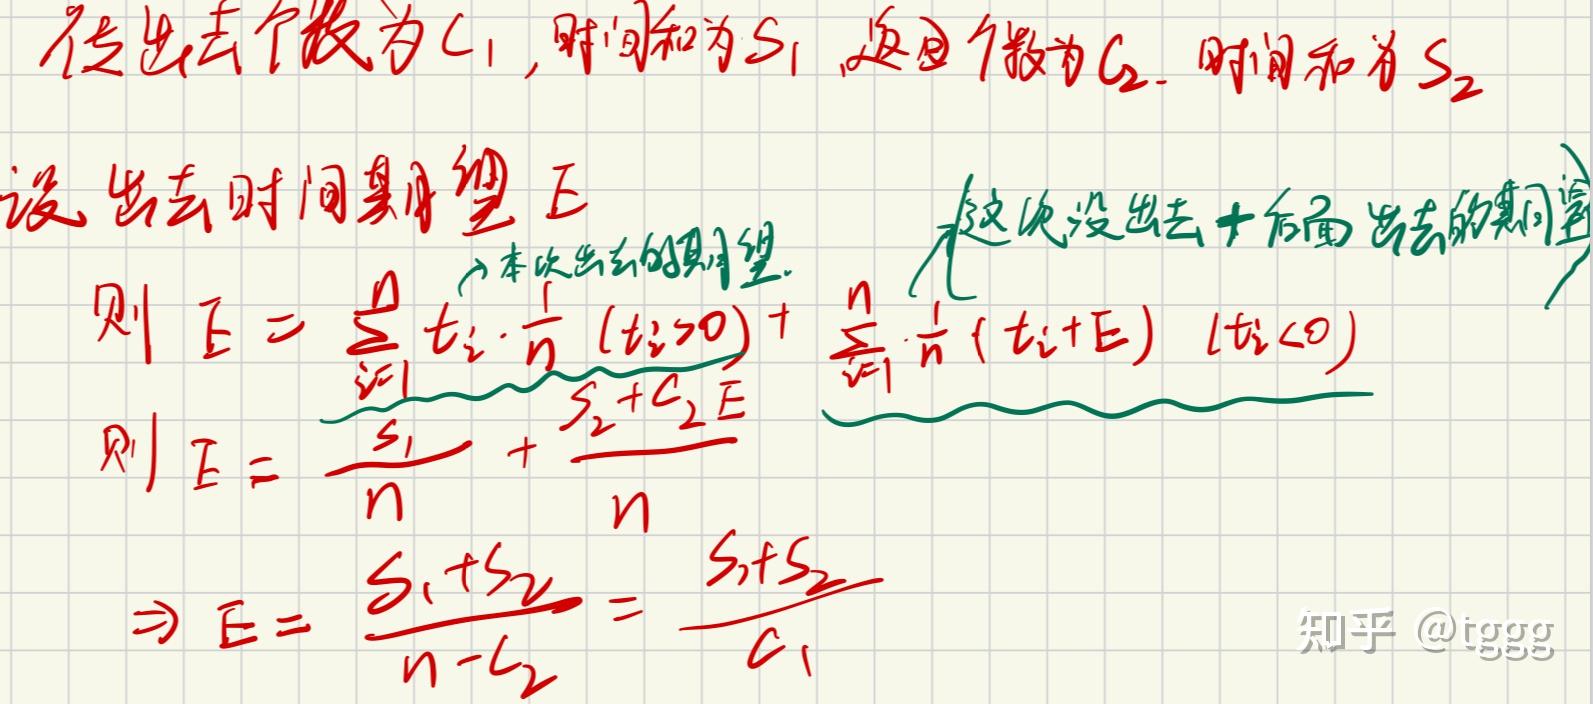 传出去个数为C₁,时间和为S₁,返回个数为C₂.时间和为S₂
设出去时间期望E
↗本次出去的期望.
(这次没出去+后面出去的期望)
则 E = \sum_{i=1}^{n} t_i · \frac{1}{n} (t_i>0) + \sum_{i=1}^{n} · \frac{1}{n} (t_i+E) (t_i<0)
则 E = \frac{S_1}{n} + \frac{S_2+C_2E}{n}
⇒ E = \frac{S_1+S_2}{n-C_2} = \frac{S_1+S_2}{C_1}
知乎 @tggg